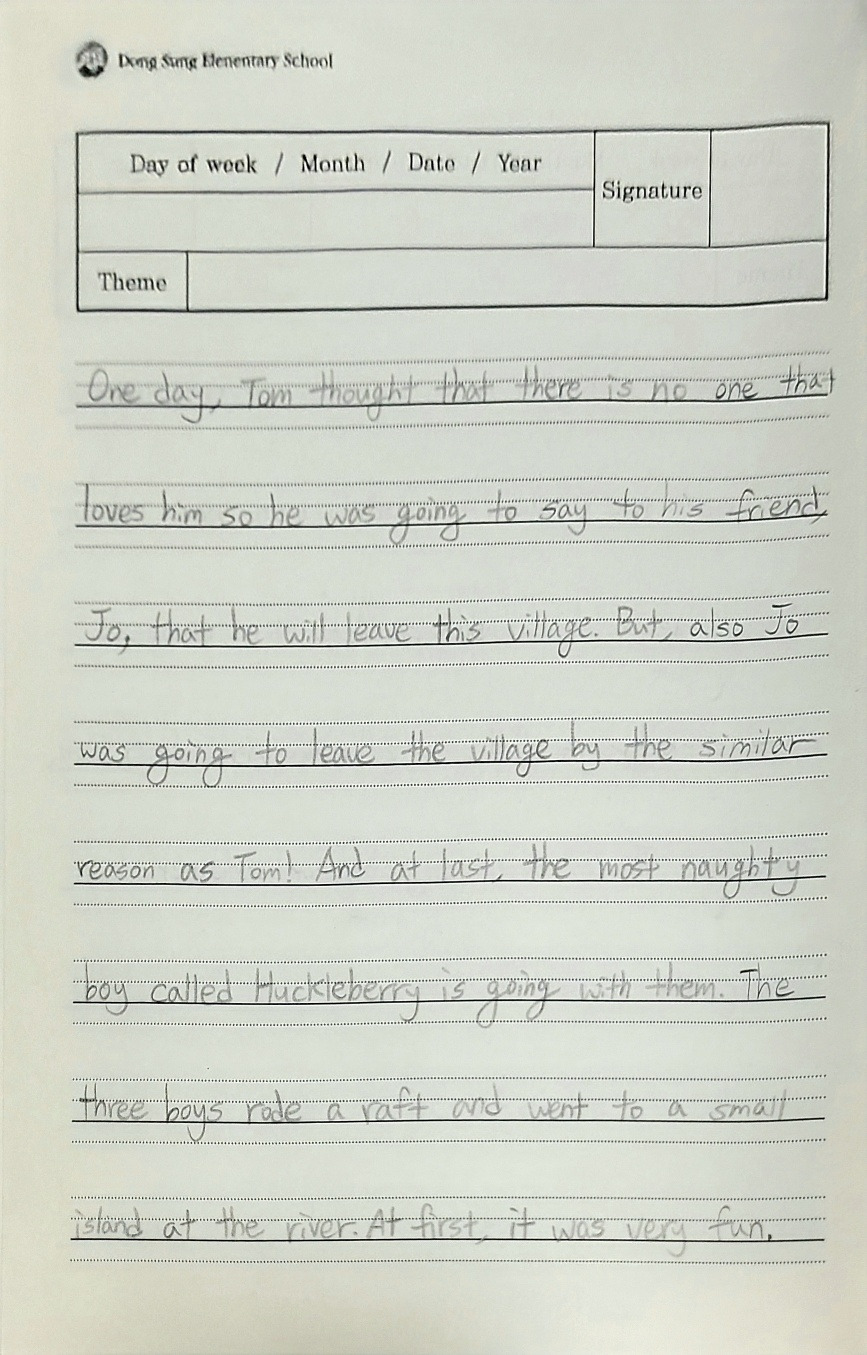 Dong Sung Elenentary School
Day of week / Month / Date / Year
Signature
Theme
One day, Tom thought that there is no one that
loves him so he was going to say to his friend,
Jo, that he will leave this village. But, also Jo
was going to leave the village by the similar
reason as Tom! And at last, the most naughty
boy called Huckleberry is going with them. The
three boys rode a raft and went to a small
island at the river. At first, it was very fun.